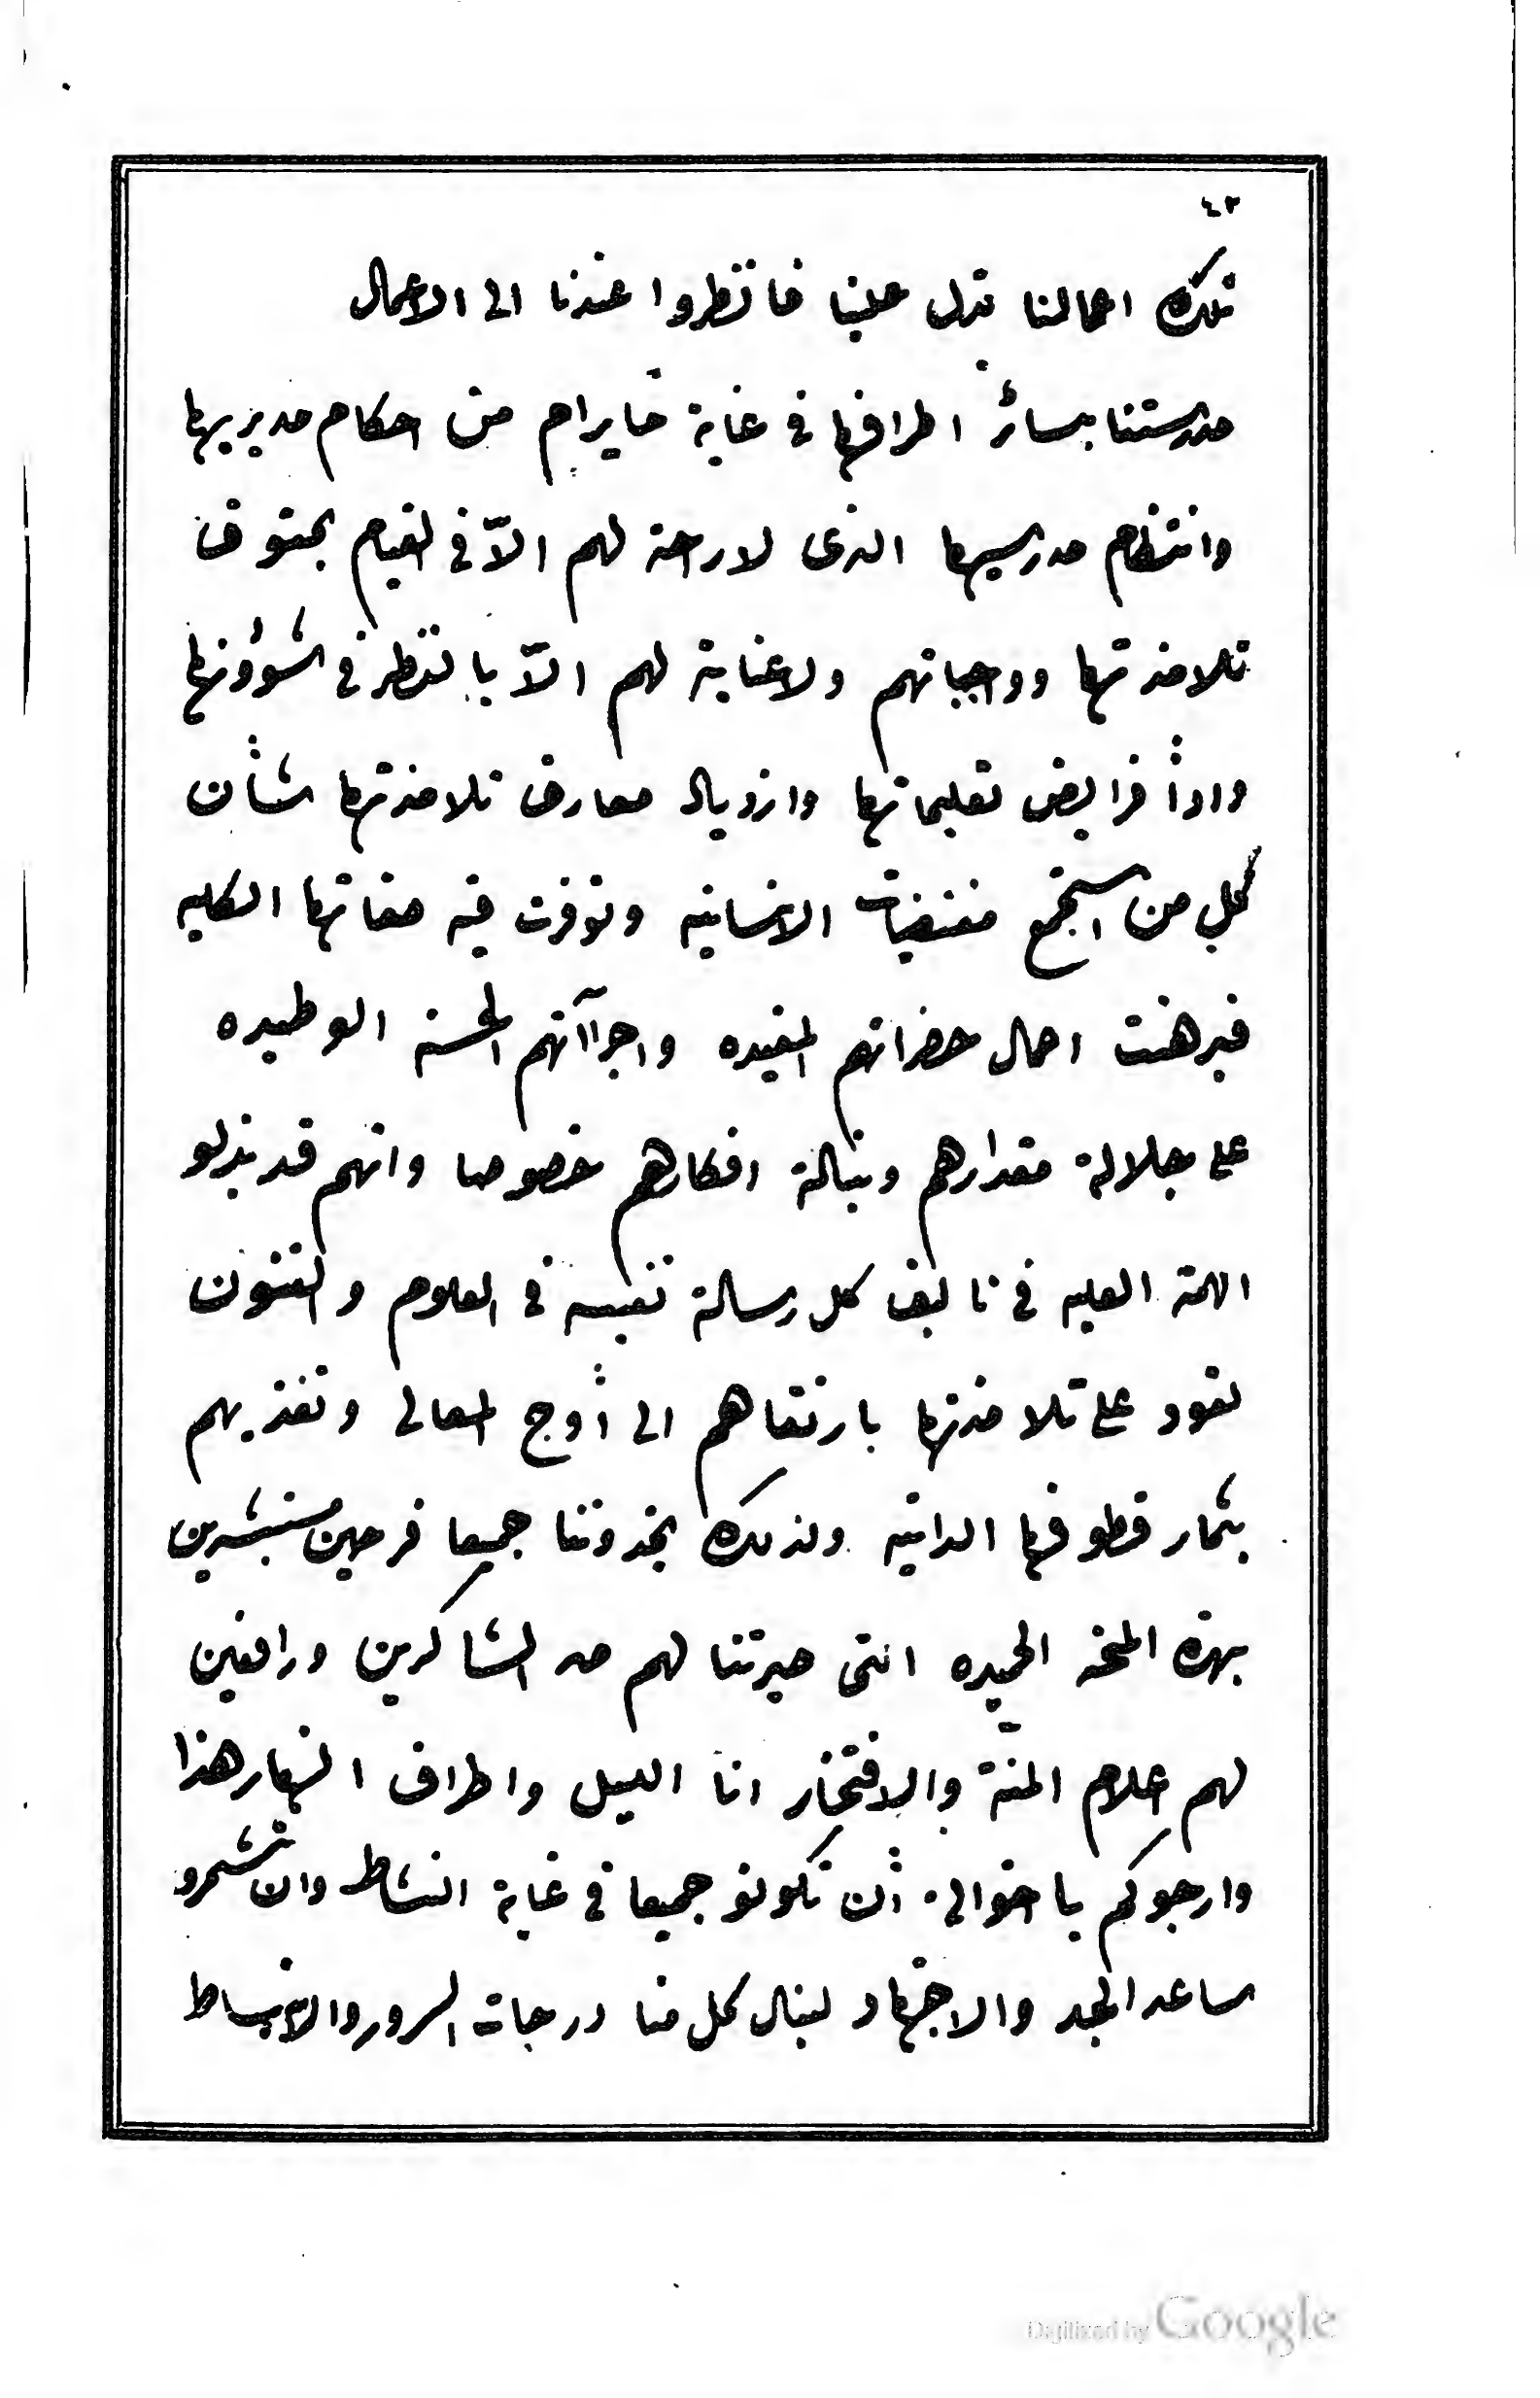 ٤٢
تلك اعمالنا تدل علينا فانظروا عندنا الى الاعمال
مدرستنا بسائر اطرافها فى غاية ما يرام من احكام مديريها
وانتظام مدرسيها الذى لا راحة لهم الاّ فى القيام بحقوق
تلامذتها وواجباتهم ولا عناية لهم الاّ بالنظر فى شوؤنها
واداأ فرايض تعليماتها وازدياد معارف تلامذتها شأن
كل من استجمع مقتضيات الانسانيه وتوفرت فيه صفاتها الكليه
فبرهنت اعمال حضراتهم المفيده واجراآتهم الحسنه الوطيده
على جلالة مقدارهم ونبالة افكارهم خصوصا وانهم قد بذلو
الهمة العليه فى تاليف كل رسالة نفيسه فى العلوم والفنون
تعود على تلامذتها بارتقاهم الى أوج المعالى وتغذيهم
بثمار قطوفها الدانيه ولذلك تجدوننا جميعا فرحين مستبشرين
بهذه المنحه الحميده التى صيرتنا لهم من الشاكرين ورافعين
لهم اعلام المنّة والافتخار انا الليل واطراف النهار هذا
وارجوكم يا اخوانى أن تكونو جميعا فى غاية النشاط وان تشمرو
ساعد الجد والاجتهاد لينال كل منا درجات السرور والانبساط
Digitized by Google